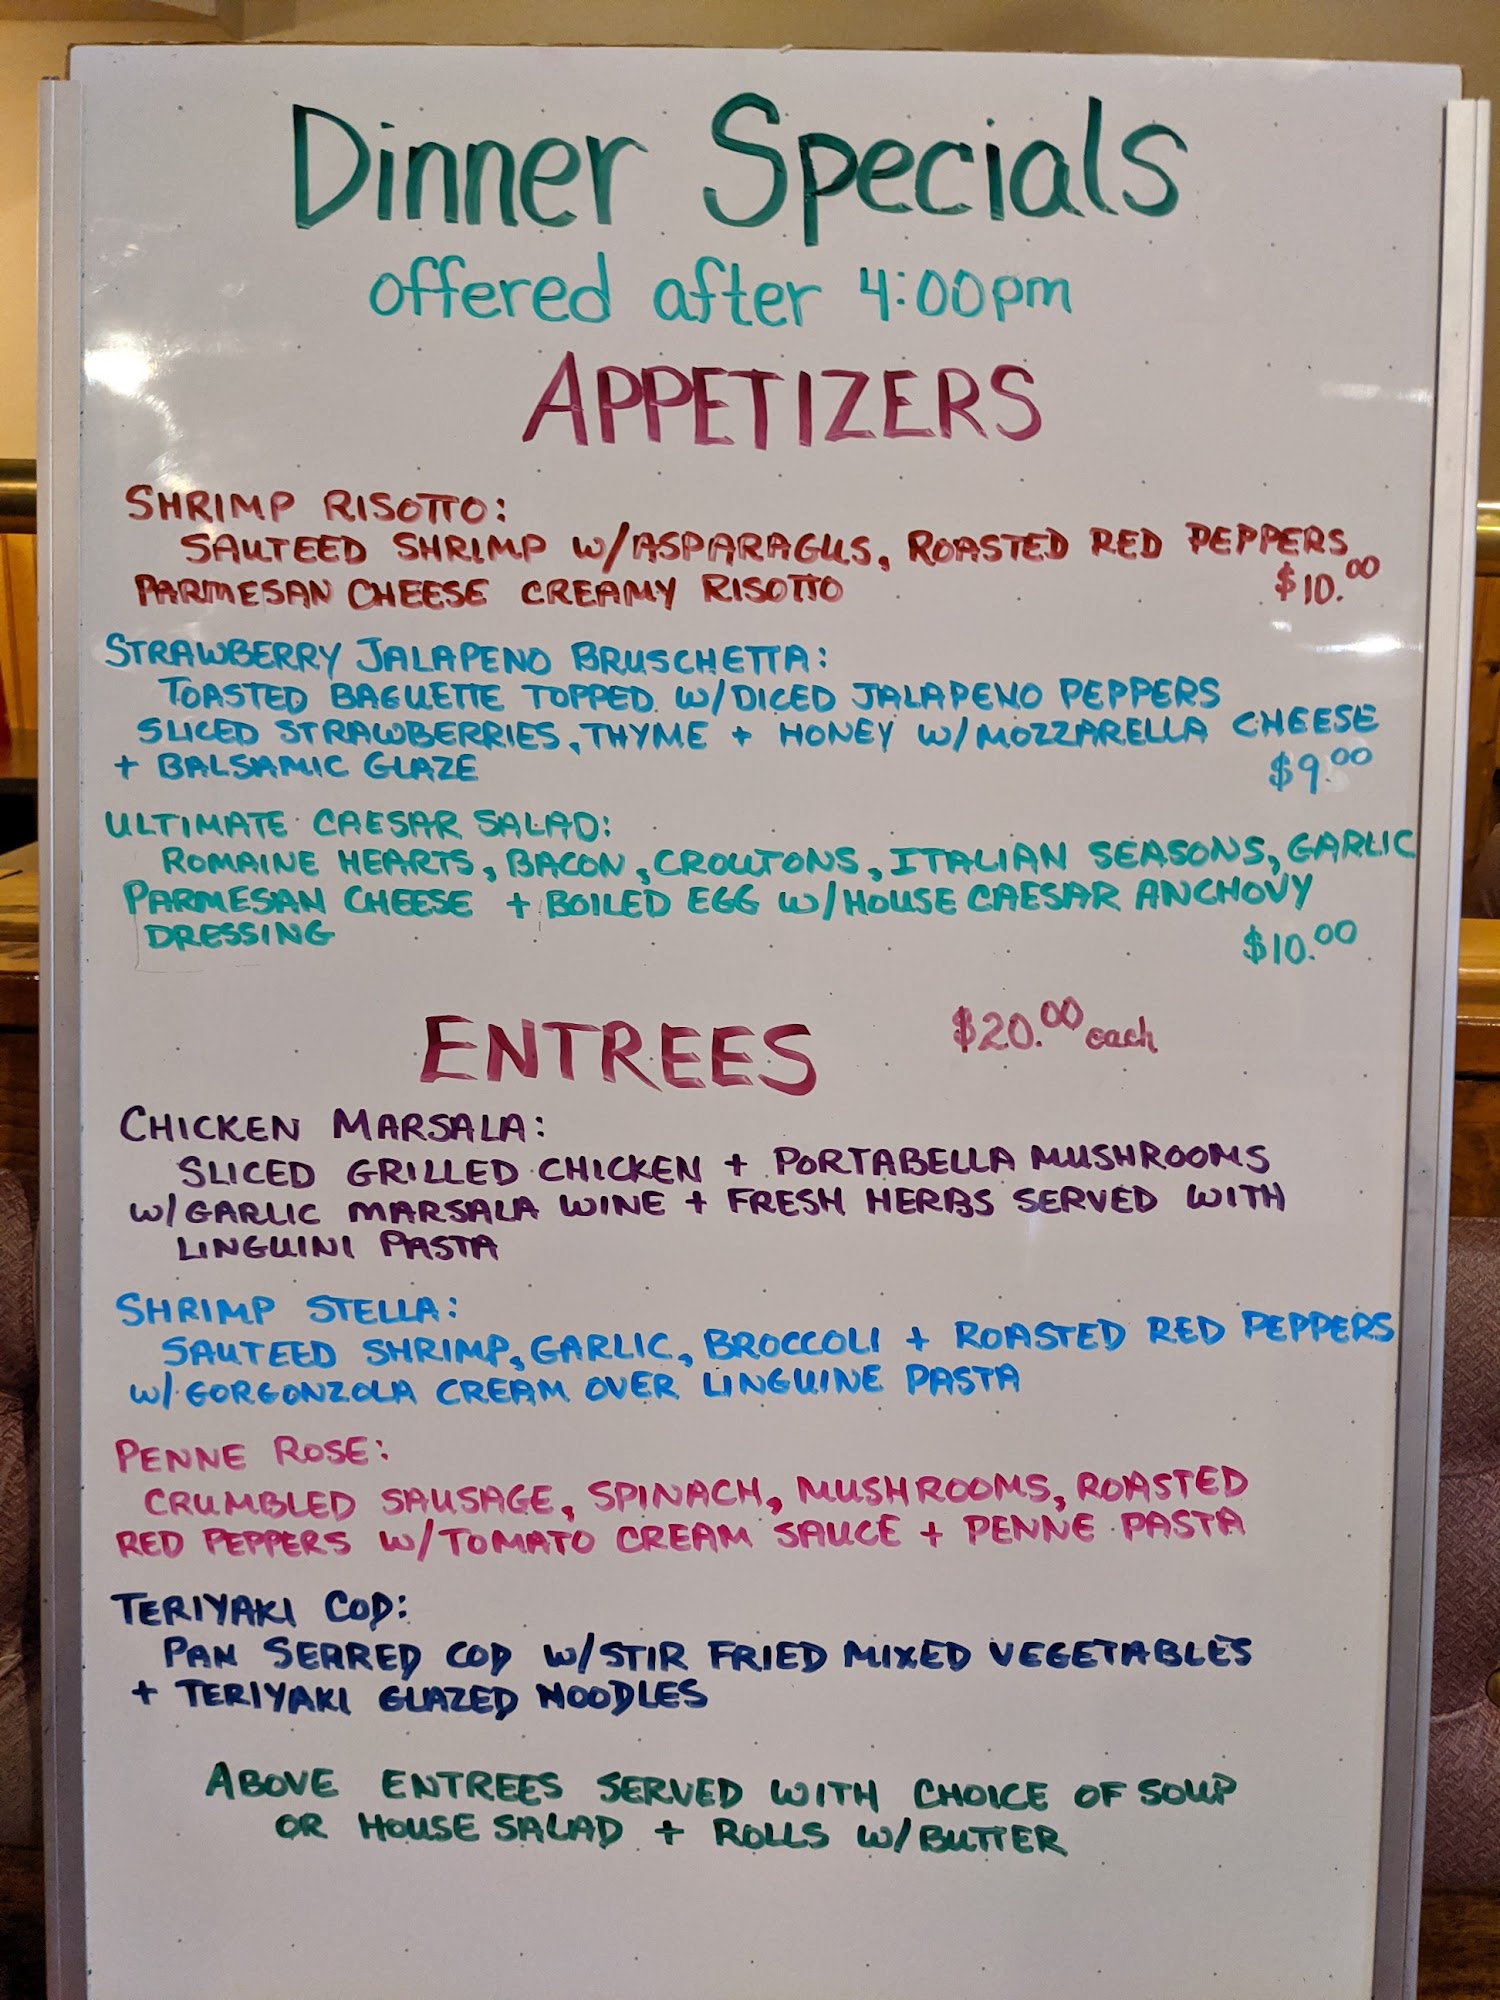 Dinner Specials
offered after 4:00pm
APPETIZERS
SHRIMP RISOTTO:
SAUTEED SHRIMP W/ASPARAGUS, ROASTED RED PEPPERS
PARMESAN CHEESE CREAMY RISOTTO $10.00
STRAWBERRY JALAPENO BRUSCHETTA:
TOASTED BAGUETTE TOPPED W/DICED JALAPENO PEPPERS
SLICED STRAWBERRIES, THYME + HONEY W/MOZZARELLA CHEESE
+ BALSAMIC GLAZE $9.00
ULTIMATE CAESAR SALAD:
ROMAINE HEARTS, BACON, CROUTONS, ITALIAN SEASONS, GARLIC
PARMESAN CHEESE + BOILED EGG W/HOUSE CAESAR ANCHOVY
DRESSING $10.00
ENTREES $20.00 each
CHICKEN MARSALA:
SLICED GRILLED CHICKEN + PORTABELLA MUSHROOMS
W/GARLIC MARSALA WINE + FRESH HERBS SERVED WITH
LINGUINI PASTA
SHRIMP STELLA:
SAUTEED SHRIMP, GARLIC, BROCCOLI + ROASTED RED PEPPERS
W/GORGONZOLA CREAM OVER LINGUINE PASTA
PENNE ROSE:
CRUMBLED SAUSAGE, SPINACH, MUSHROOMS, ROASTED
RED PEPPERS W/TOMATO CREAM SAUCE + PENNE PASTA
TERIYAKI COD:
PAN SEARED COD W/STIR FRIED MIXED VEGETABLES
+ TERIYAKI GLAZED NOODLES
ABOVE ENTREES SERVED WITH CHOICE OF SOUP
OR HOUSE SALAD + ROLLS W/BUTTER